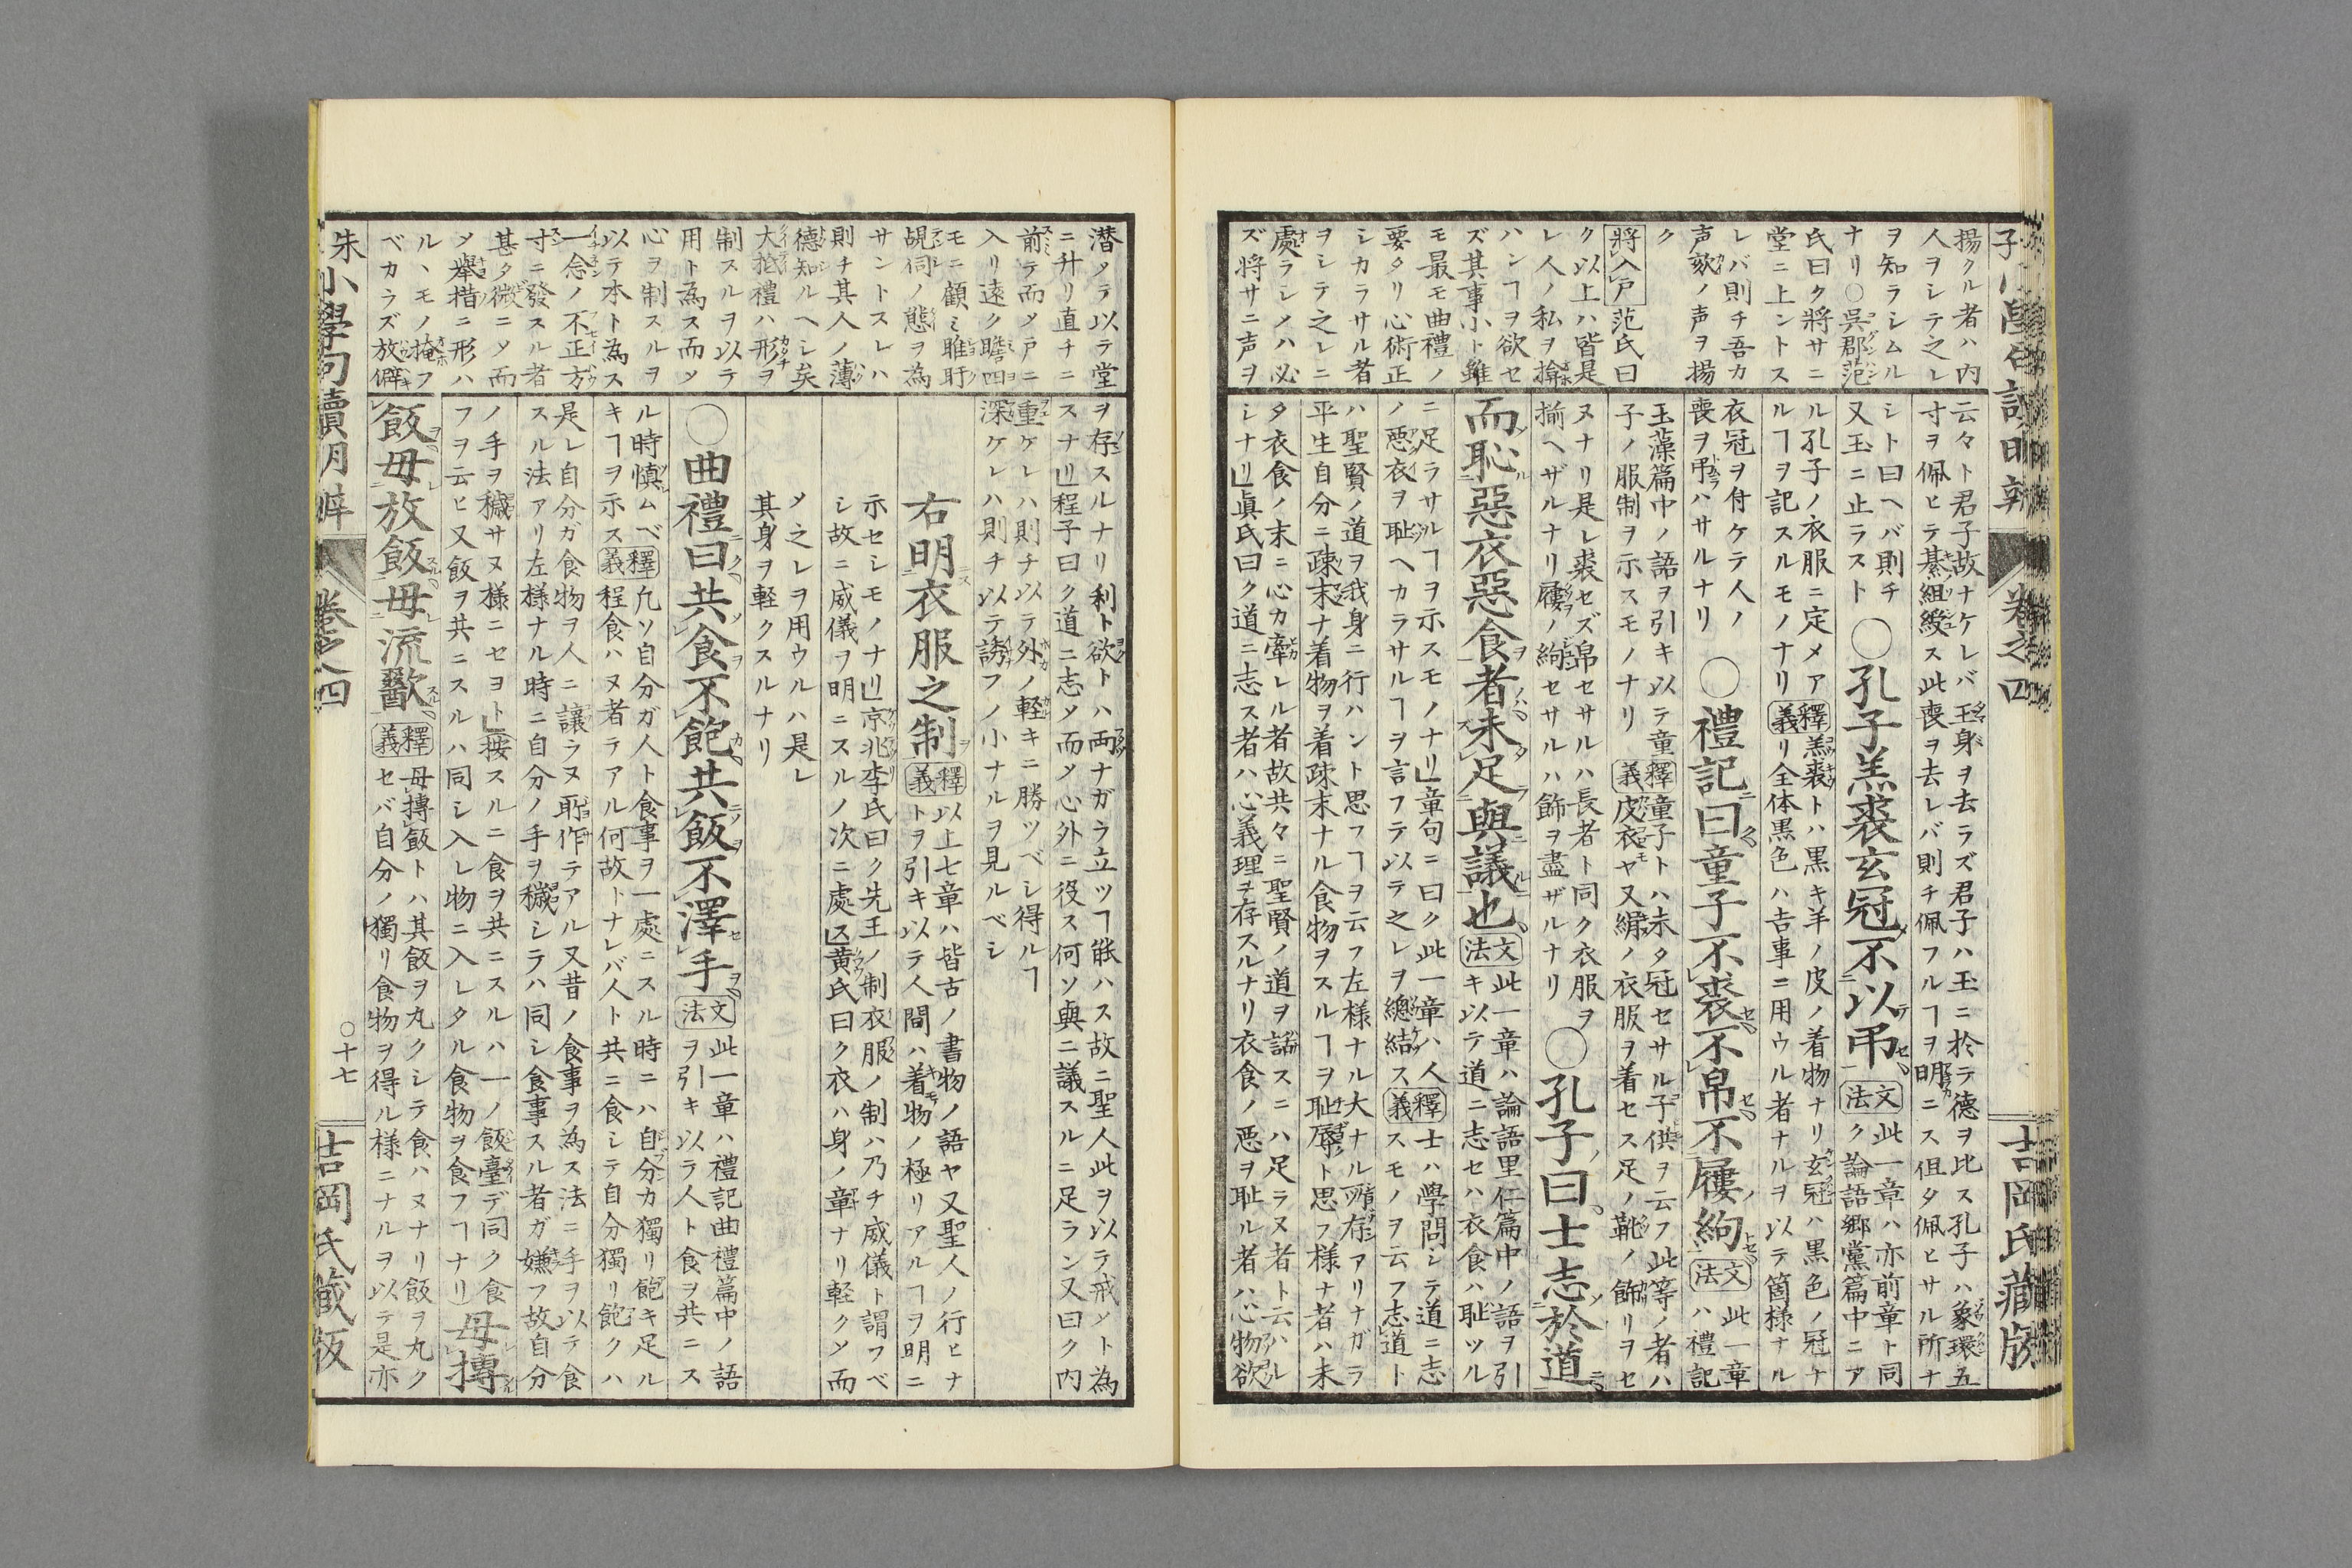 揚クル者ハ内
人ヲシテ之レ
ヲ知ラシムル
ナリ〇呉郡范
氏曰ク將サニ
堂ニ上ントス
レバ則チ吾カ
声欬ノ声ヲ揚
ク
將入戸 范氏曰
ク以上ハ皆是
レ人ノ私ヲ揜
ハンヿヲ欲セ
ズ其事小ト雖
モ最モ曲禮ノ
要タリ心術正
シカラサル者
ヲシテ之レニ
處ラシメハ必
ズ將サニ声ヲ
云々ト君子故ナケレバ玉身ヲ去ラズ君子ハ玉ニ於テ德ヲ比ス孔子ハ象環五
寸ヲ佩ヒテ綦組綬ス此喪ヲ去レバ則チ佩フルヿヲ明ニス伹タ佩ヒサル所ナ
シト曰ヘバ則チ
又玉ニ止ラスト
〇孔子羔裘玄冠不以弔
文法
此一章ハ亦前章ト同
ク論語郷黨篇中ニア
ル孔子ノ衣服ニ定メア
ルヿヲ記スルモノナリ
釋義
羔裘トハ黒キ羊ノ皮ノ着物ナリ玄冠ハ黒色ノ冠ナ
リ全体黒色ハ吉事ニ用ウル者ナルヲ以テ箇様ナル
衣冠ヲ付ケテ人ノ
喪ヲ弔ハサルナリ
〇禮記曰童子不裘不帛不屨絇
文法
此一章
ハ禮記
玉藻篇中ノ語ヲ引キ以テ童
子ノ服制ヲ示スモノナリ
釋義
童子トハ未タ冠セサル子供ヲ云フ此等ノ者ハ
皮衣ヤ又絹ノ衣服ヲ着セス足ノ靴ノ飾リヲセ
ヌナリ是レ裘セズ帛セサルハ長者ト同ク衣服ヲ
揃ヘザルナリ屨ノ絇セサルハ飾ヲ盡ザルナリ
〇孔子曰士志於道
而恥惡衣惡食者未足與議也
文法
此一章ハ論語里仁篇中ノ語ヲ引
キ以テ道ニ志セハ衣食ハ耻ツル
ニ足ラサルヿヲ示スモノナリ」童句ニ曰ク此一章ハ人
ノ惡衣ヲ耻ヘカラサルヿヲ言フテ以テ之レヲ總結ス
釋義
士ハ學問シテ道ニ志
スモノヲ云フ志道ト
ハ聖賢ノ道ヲ我身ニ行ハント思フヿヲ云フ左様ナル大ナル願存アリナガラ
平生自分ニ疎末ナ着物ヲ着疎末ナル食物ヲスルヿヲ耻辱ト思フ様ナ者ハ未
タ衣食ノ末ニ心カ牽レル者故共々ニ聖賢ノ道ヲ話スニハ足ラヌ者ト云ハレ
シナリ」眞氏曰ク道ニ志ス者ハ心義理ヲ存スルナリ衣食ノ悪ヲ耻ル者ハ心物欲
卷之四
吉岡氏藏版
潜メテ以テ堂
ニ升リ直チニ
前テ而メ戸ニ
入リ遠ク瞻四
モニ顧ミ睢盱
覘伺ノ態ヲ為
サントスレハ
則チ其人ノ薄
德知ルヘシ矣
大抵禮ハ形ヲ
制スルヲ以テ
用ト為ス而メ
心ヲ制スルヲ
以テ本ト為ス
一念ノ不正方
寸ニ發スル者
甚タ微ニメ而
メ擧措ニ形ハ
ルヽモノ掩フ
ベカラズ放僻
ヲ存スルナリ利ト欲トハ両ナガラ立ツヿ能ハス故ニ聖人此ヲ以テ戒メト為
スナリ」程子曰ク道ニ志メ而メ心外ニ役ス何ソ與ニ議スルニ足ラン又曰ク内
重ケレハ則チ以テ外ノ軽キニ勝ツベシ得ルヿ
深ケレハ則チ以テ誘フノ小ナルヲ見ルベシ
右明衣服之制
釋義
以上七章ハ皆古ノ書物ノ語ヤ又聖人ノ行ヒナ
トヲ引キ以テ人間ハ着物ノ極リアルヿヲ明ニ
示セシモノナリ」京兆李氏曰ク先王ノ制衣服ノ制ハ乃チ威儀ト謂フベ
シ故ニ威儀ヲ明ニスルノ次ニ處ス」黄氏曰ク衣ハ身ノ章ナリ軽クメ而
メ之レヲ用ウルハ是レ
其身ヲ軽クスルナリ
〇曲禮曰共食不飽共飯不澤手
文法
此一章ハ禮記曲禮篇中ノ語
ヲ引キ以テ人ト食ヲ共ニス
ル時慎ムベ
キヿヲ示ス
釋義
凢ソ自分ガ人ト食事ヲ一處ニスル時ニハ自分カ獨リ飽キ足ル
程食ハヌ者テアル何故トナレバ人ト共ニ食シテ自分獨リ飽クハ
是レ自分ガ食物ヲ人ニ讓ラヌ耻作テアル又昔ノ食事ヲ為ス法ニ手ヲ以テ食
スル法アリ左様ナル時ニ自分ノ手ヲ穢シテハ同シ食事スル者ガ嫌フ故自分
ノ手ヲ穢サヌ様ニセヨト」按スルニ食ヲ共ニスルハ一ノ飯臺デ同ク食
フヲ云ヒ又飯ヲ共ニスルハ同シ入レ物ニ入レタル食物ヲ食フヿナリ」
毋摶
飯毋放飯毋流歠
釋義
毋摶飯トハ其飯ヲ丸クシテ食ハヌナリ飯ヲ丸ク
セバ自分ノ獨リ食物ヲ得ル様ニナルヲ以テ是亦
朱小學句讀明辨
卷之四
〇十七
吉岡氏藏版